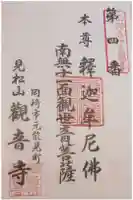 第四番
本尊 釋迦牟尼佛
南無十一面觀世音菩薩
岡崎市元能見町
見松山 觀音寺